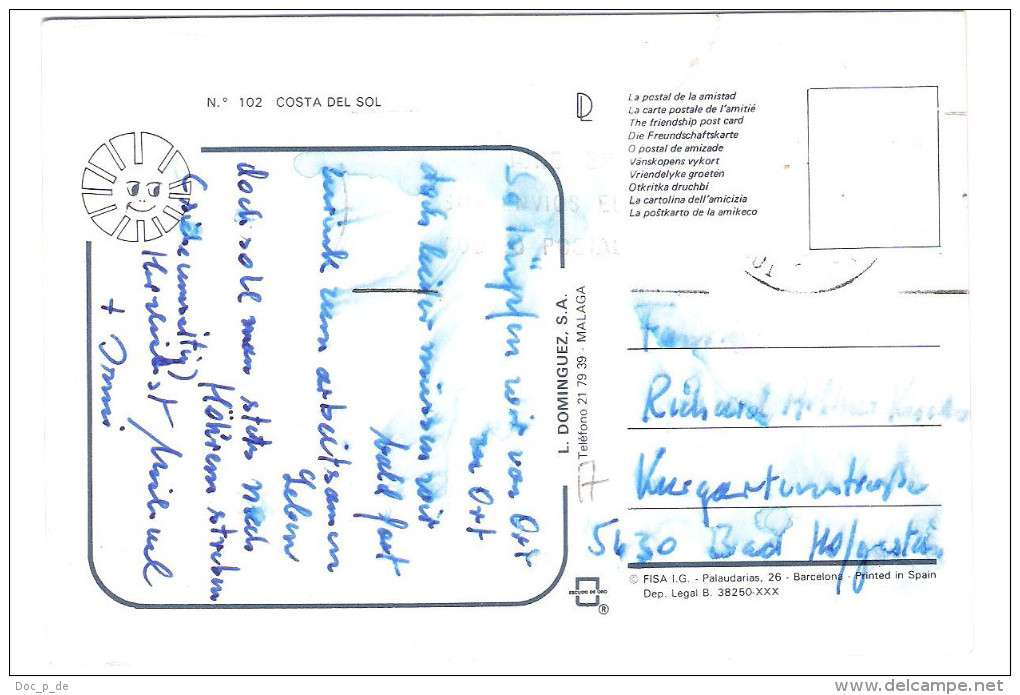 N.° 102 COSTA DEL SOL
So hüpfen wir von Ort
zu Ort
doch leider müssen wir
bald fort
zurück zum arbeitsamen
Leben
doch soll man stets nach
Höhrem streben
Michael
+ Ommi
L. DOMINGUEZ, S.A.
Teléfono 21 79 39 - MALAGA
La postal de la amistad
La carte postale de l'amitié
The friendship post card
Die Freundschaftskarte
O postal de amizade
Vänskopens vykort
Vriendelyke groeten
Otkritka druchbi
La cartolina dell'amicizia
La poŝtkarto de la amikeco
ENVIOS
POSTAL
Richard
Kurgartenstraße
5630 Bad Hofgastein
ESCUDO DE ORO
®
© FISA I.G. - Palaudarias, 26 - Barcelona - Printed in Spain
Dep. Legal B. 38250-XXX
Doc_p_de